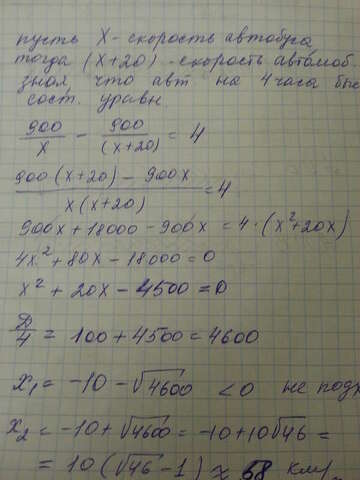 пусть X - скорость автобуса
тогда (X+20) - скорость автомоб.
зная, что авт на 4 часа быс
сост. уравн.
900/x - 900/(x+20) = 4
(900(x+20) - 900x)/(x(x+20)) = 4
900x + 18000 - 900x = 4·(x²+20x)
4x² + 80x - 18000 = 0
x² + 20x - 4500 = 0
D/4 = 100 + 4500 = 4600
x₁ = -10 - √4600 < 0 не подх
x₂ = -10 + √4600 = -10 + 10√46 =
= 10(√46 - 1) ≈ 58 км/